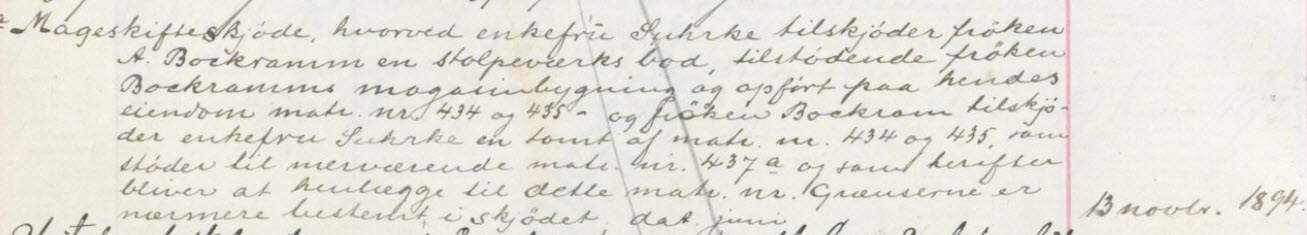 Mageskifteskjøde, hvorved enkefru Suhrke tilskjøder frøken
A. Bockramm en stolpeværks bod, tilstødende frøken
Bockramms magasinbygning og opført paa hendes
eiendom matr. nr. 434 og 435 - og frøken Bockram tilskjø-
der enkefru Suhrke en tomt af matr. nr. 434 og 435, som
støder til nærværende matr. nr. 437a og som herefter
bliver at henlægge til dette matr. nr. Grændserne er
nærmere bestemt i skjødet dat juni
13 novbr. 1894.